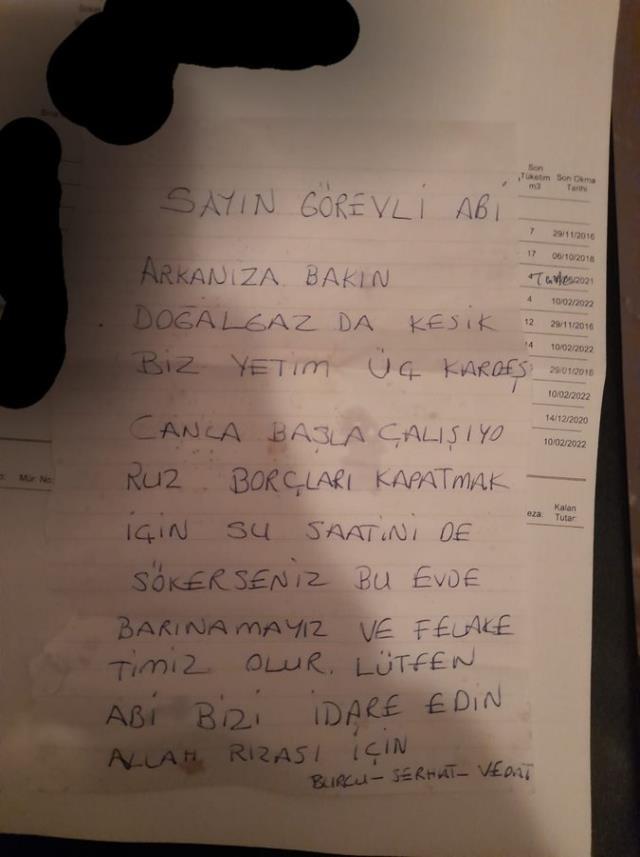 SAYIN GÖREVLİ ABİ
ARKANIZA BAKIN
DOĞALGAZ DA KESİK
BİZ YETİM ÜÇ KARDEŞ
CANLA BAŞLA ÇALIŞIYO
RUZ BORÇLARI KAPATMAK
İÇİN SU SAATİNİ DE
SÖKERSENİZ BU EVDE
BARINAMAYIZ VE FELAKE
TİMİZ OLUR. LÜTFEN
ABİ BİZİ İDARE EDİN
ALLAH RIZASI İÇİN
BURCU - SERHAT - VEDAT
Son Tüketim m3 Son Okma Tarihi
7 29/11/2016
17 06/10/2016
/2021
4 10/02/2022
12 29/11/2016
4 10/02/2022
29/01/2016
10/02/2022
14/12/2020
10/02/2022
Mür. No:
eza: Kalan Tutar: